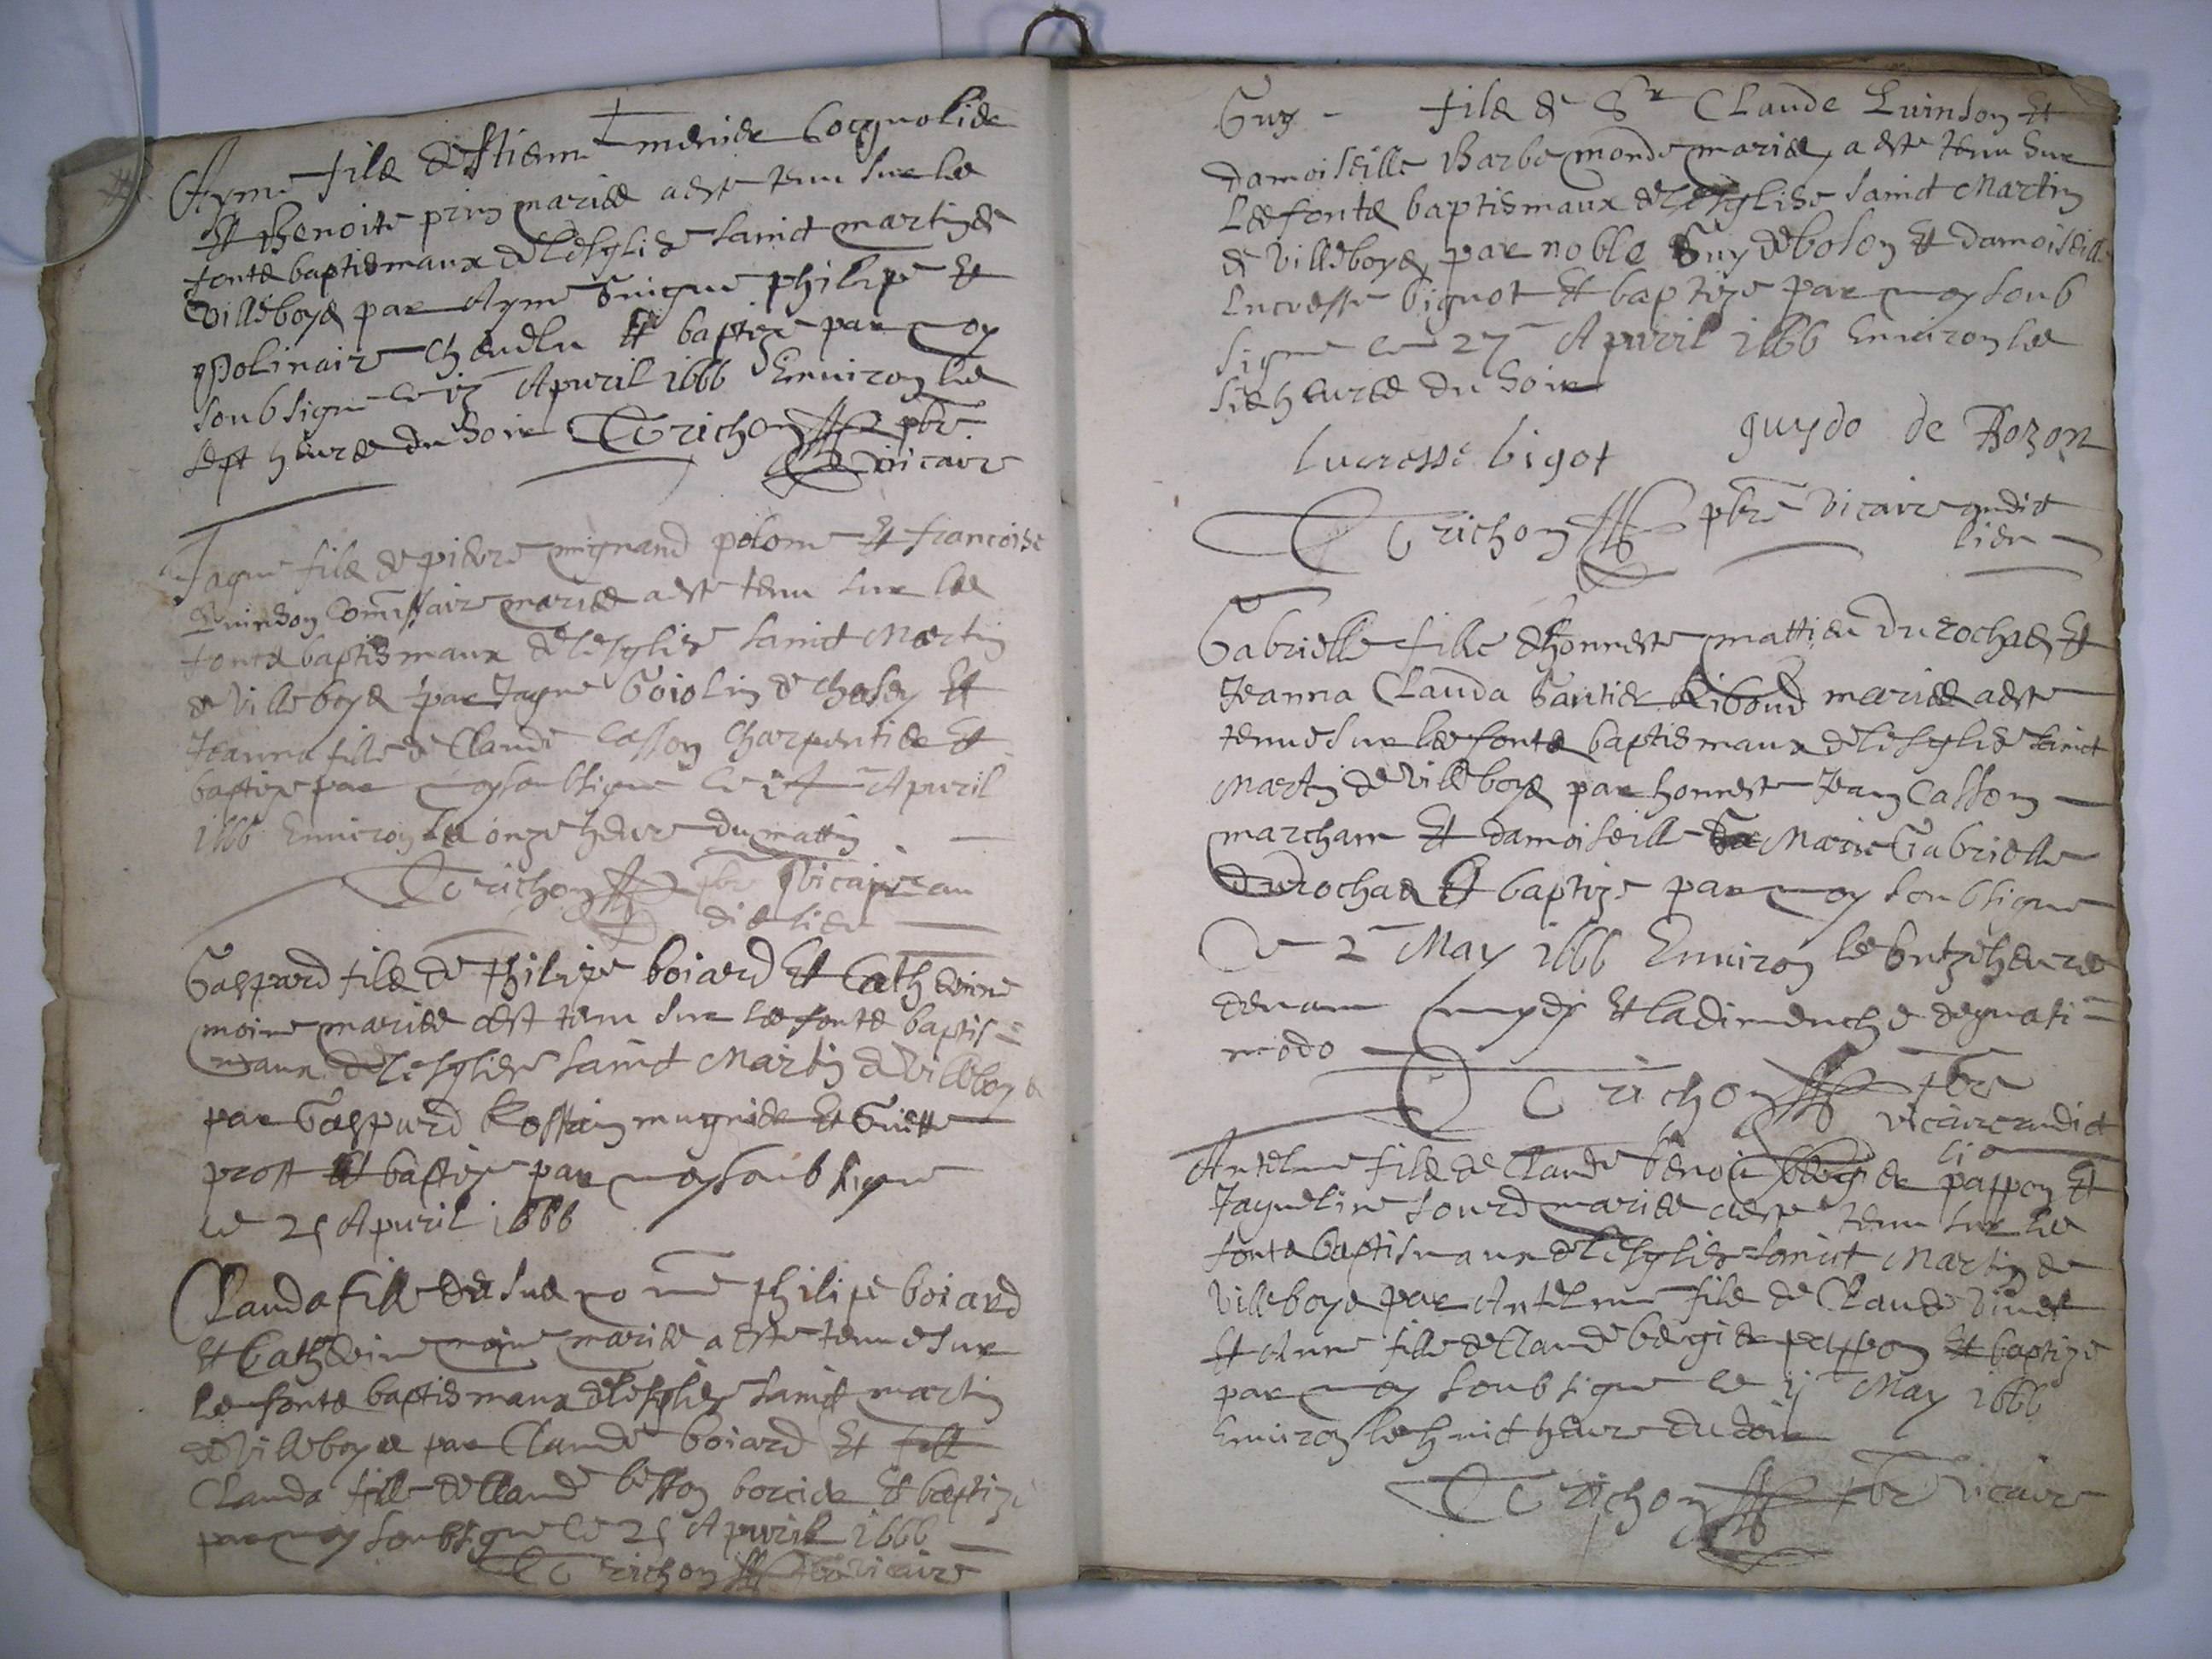 Ayme filz destienne menier Cocgnolier
Et Benoite prin mariez a esté tenu sur les
fontz baptismaux de lesglise sainct martin de
Villeboys par Ayme Guigue philipe Et
Polinaire Et baptize par moy
soubsigne ce Apuril 1666 Enuiron les
sept heures du soir Trichon pbre
vicaire
Jaque filz de piere mignand Et francoise
Luinson Comissaire mariez a esté tenu sur les
fontz baptismaux de lesglise sainct Martin
de Villeboys par Jaque Goiolin de Et
Jeanna fille de Claude Casson Charpentier Et
baptize par moy soubsigne ce Apuril
1666 Enuiron les onze heure du mattin
Trichon pbre vicaire au
dit lieu
Gaspard filz de philipe boiard Et Catherine
moine mariez a est tenu sur les fontz baptis=
maux de lesglise sainct Martin de Villeboys
par Gaspard Rostain mugnier Et Guiette
prost Et baptize par moy soubsigne
ce 25 Apuril 1666
Clauda fille des susnommé philipe boiard
Et Catherine moine mariez a esté tenue sur
les fontz baptismaux de lesglise sainct martin
de Villeboys par Claude boiard Et
Clauda fille de Claude besson Et baptize
par moy soubsigne ce 25 Apuril 1666
Trichon pbre vicaire
Guy - filz de Sr Claude Luinson Et
damoiseille Barbe monde mariez a esté tenu sur
les fontz baptismaux de lesglise sainct Martin
de Villeboys par noble Guy de boson Et damoiseille
Lucresse biguot Et baptize par moy soub
signe ce 27 Apuril 1666 Enuiron les
six heures du soir
guydo de Bozon
lucresse bigot
Trichon pbre Vicaire audit
lieu
Gabrielle fille dhonneste mattieu du rochas Et
Jeanna Clauda Gautier Riboud mariez a esté
tenue sur les fontz baptismaux de lesglise sainct
Martin de Villeboys par honneste Jean Casson
marchant Et damoiseille Marie Gabrielle
durochas Et baptize par moy soubsigne
Ce 2 May 1666 Enuiron les unze heures
deuant mydy Et la dimenche de quasi=
modo
Trichon pbre
vicaire audict
lieu
Antelme filz de Claude benoit pappon Et
Jaqueline sourd mariez a esté tenu sur les
fontz baptismaux de lesglise sainct Martin de
Villeboys par Antelme filz de Claude
Et Anne fille de Claude bergier pappon Et baptize
par moy soubsigne le ij May 1666
Enuiron les huict heure du soir
Trichon pbre vicaire